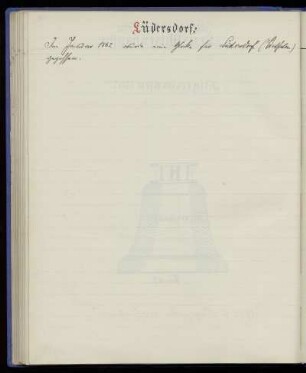 Lüdersdorf:
Im Januar 1862 wurde eine Glocke für Lüdersdorf
gegossen.